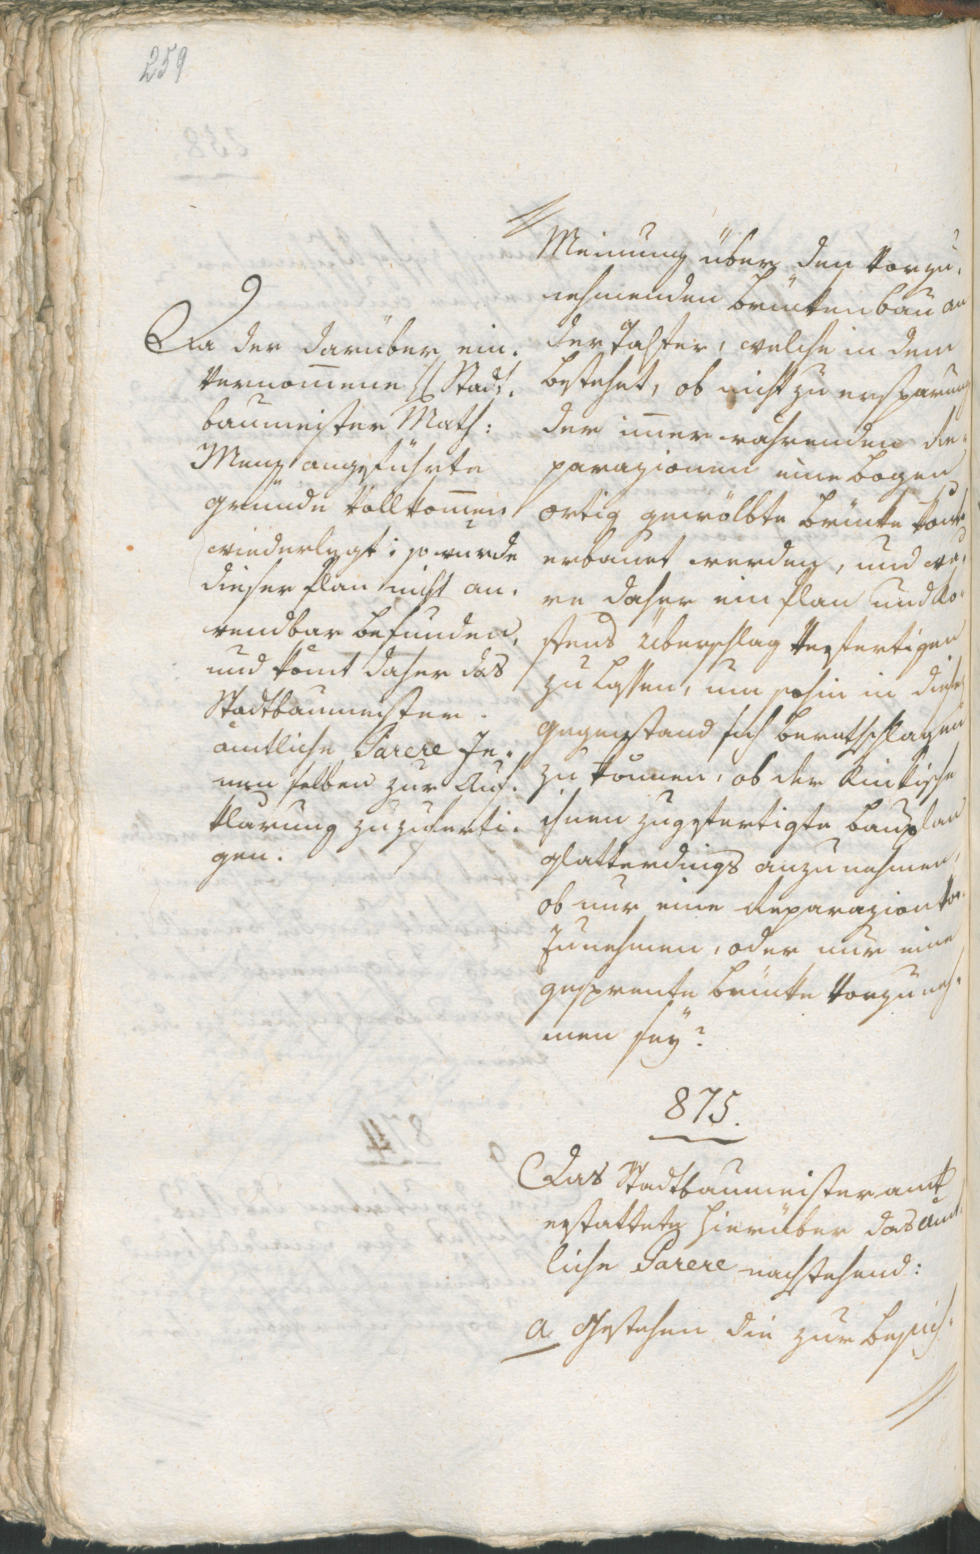 259
Da der darüber ein-
vernom̄ene H Stadt-
baumeister Math:
Menz angeführte
gründe vollkom̄en
wiederlegt: so wurde
dieser Plan nicht an-
wendbar befunden,
und köm̄t daher das
Stadtbaumeister-
amtliche Parere Je-
nen selben zur Auf-
klärung zuzuferti-
gen.
Meinung über den vorzu-
nehmenden brückenbau an
der Talfer, welche in dem
bestehet, ob nicht zu ersparung
der im̄erwährenden Re-
parazionen eine bogen
artig gewölbte brücke könte
erbauet werden, und wä-
re daher ein Plan und Ko-
stens Überschlag verfertigen
zu lassen, um sohin in diesen
gegenstand sich berathschlagen
zu können, ob der
ihnen zugefertigte bauplan
glatterdings anzunehmen,
ob nur eine Reparazion vor-
zunehmen, oder nur eine
gesprengte brücke vorzuneh-
men seÿ?
875.
Das Stadtbaumeisteramt
erstattete hierüber das amt-
liche Parere nachstehend:
a gestehen die zur besich-